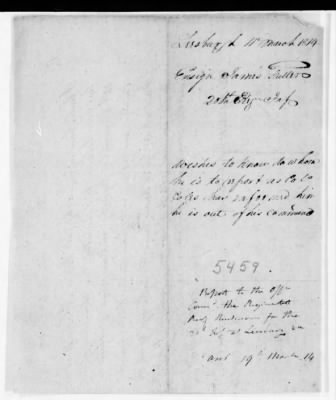 Leesburgh 11th March 1814
Ensign James Tutler
20th Regt Inf
wishes to know to whom
he is to report as Col
Coles has informed him
he is out of his command
5459.
Report to the Offr
Comg the Regimental
Rendezvous for the
20 Inf at va
ansd 19th March 14